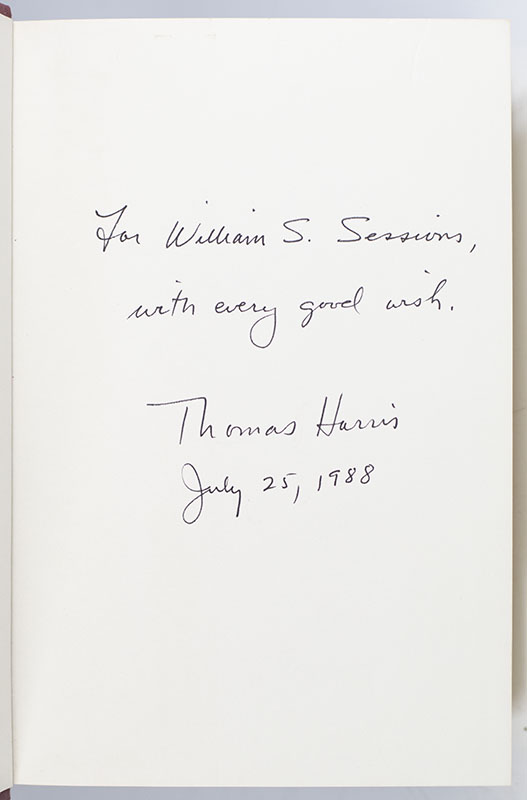 For William S. Sessions,
with every good wish.
Thomas Harris
July 25, 1988